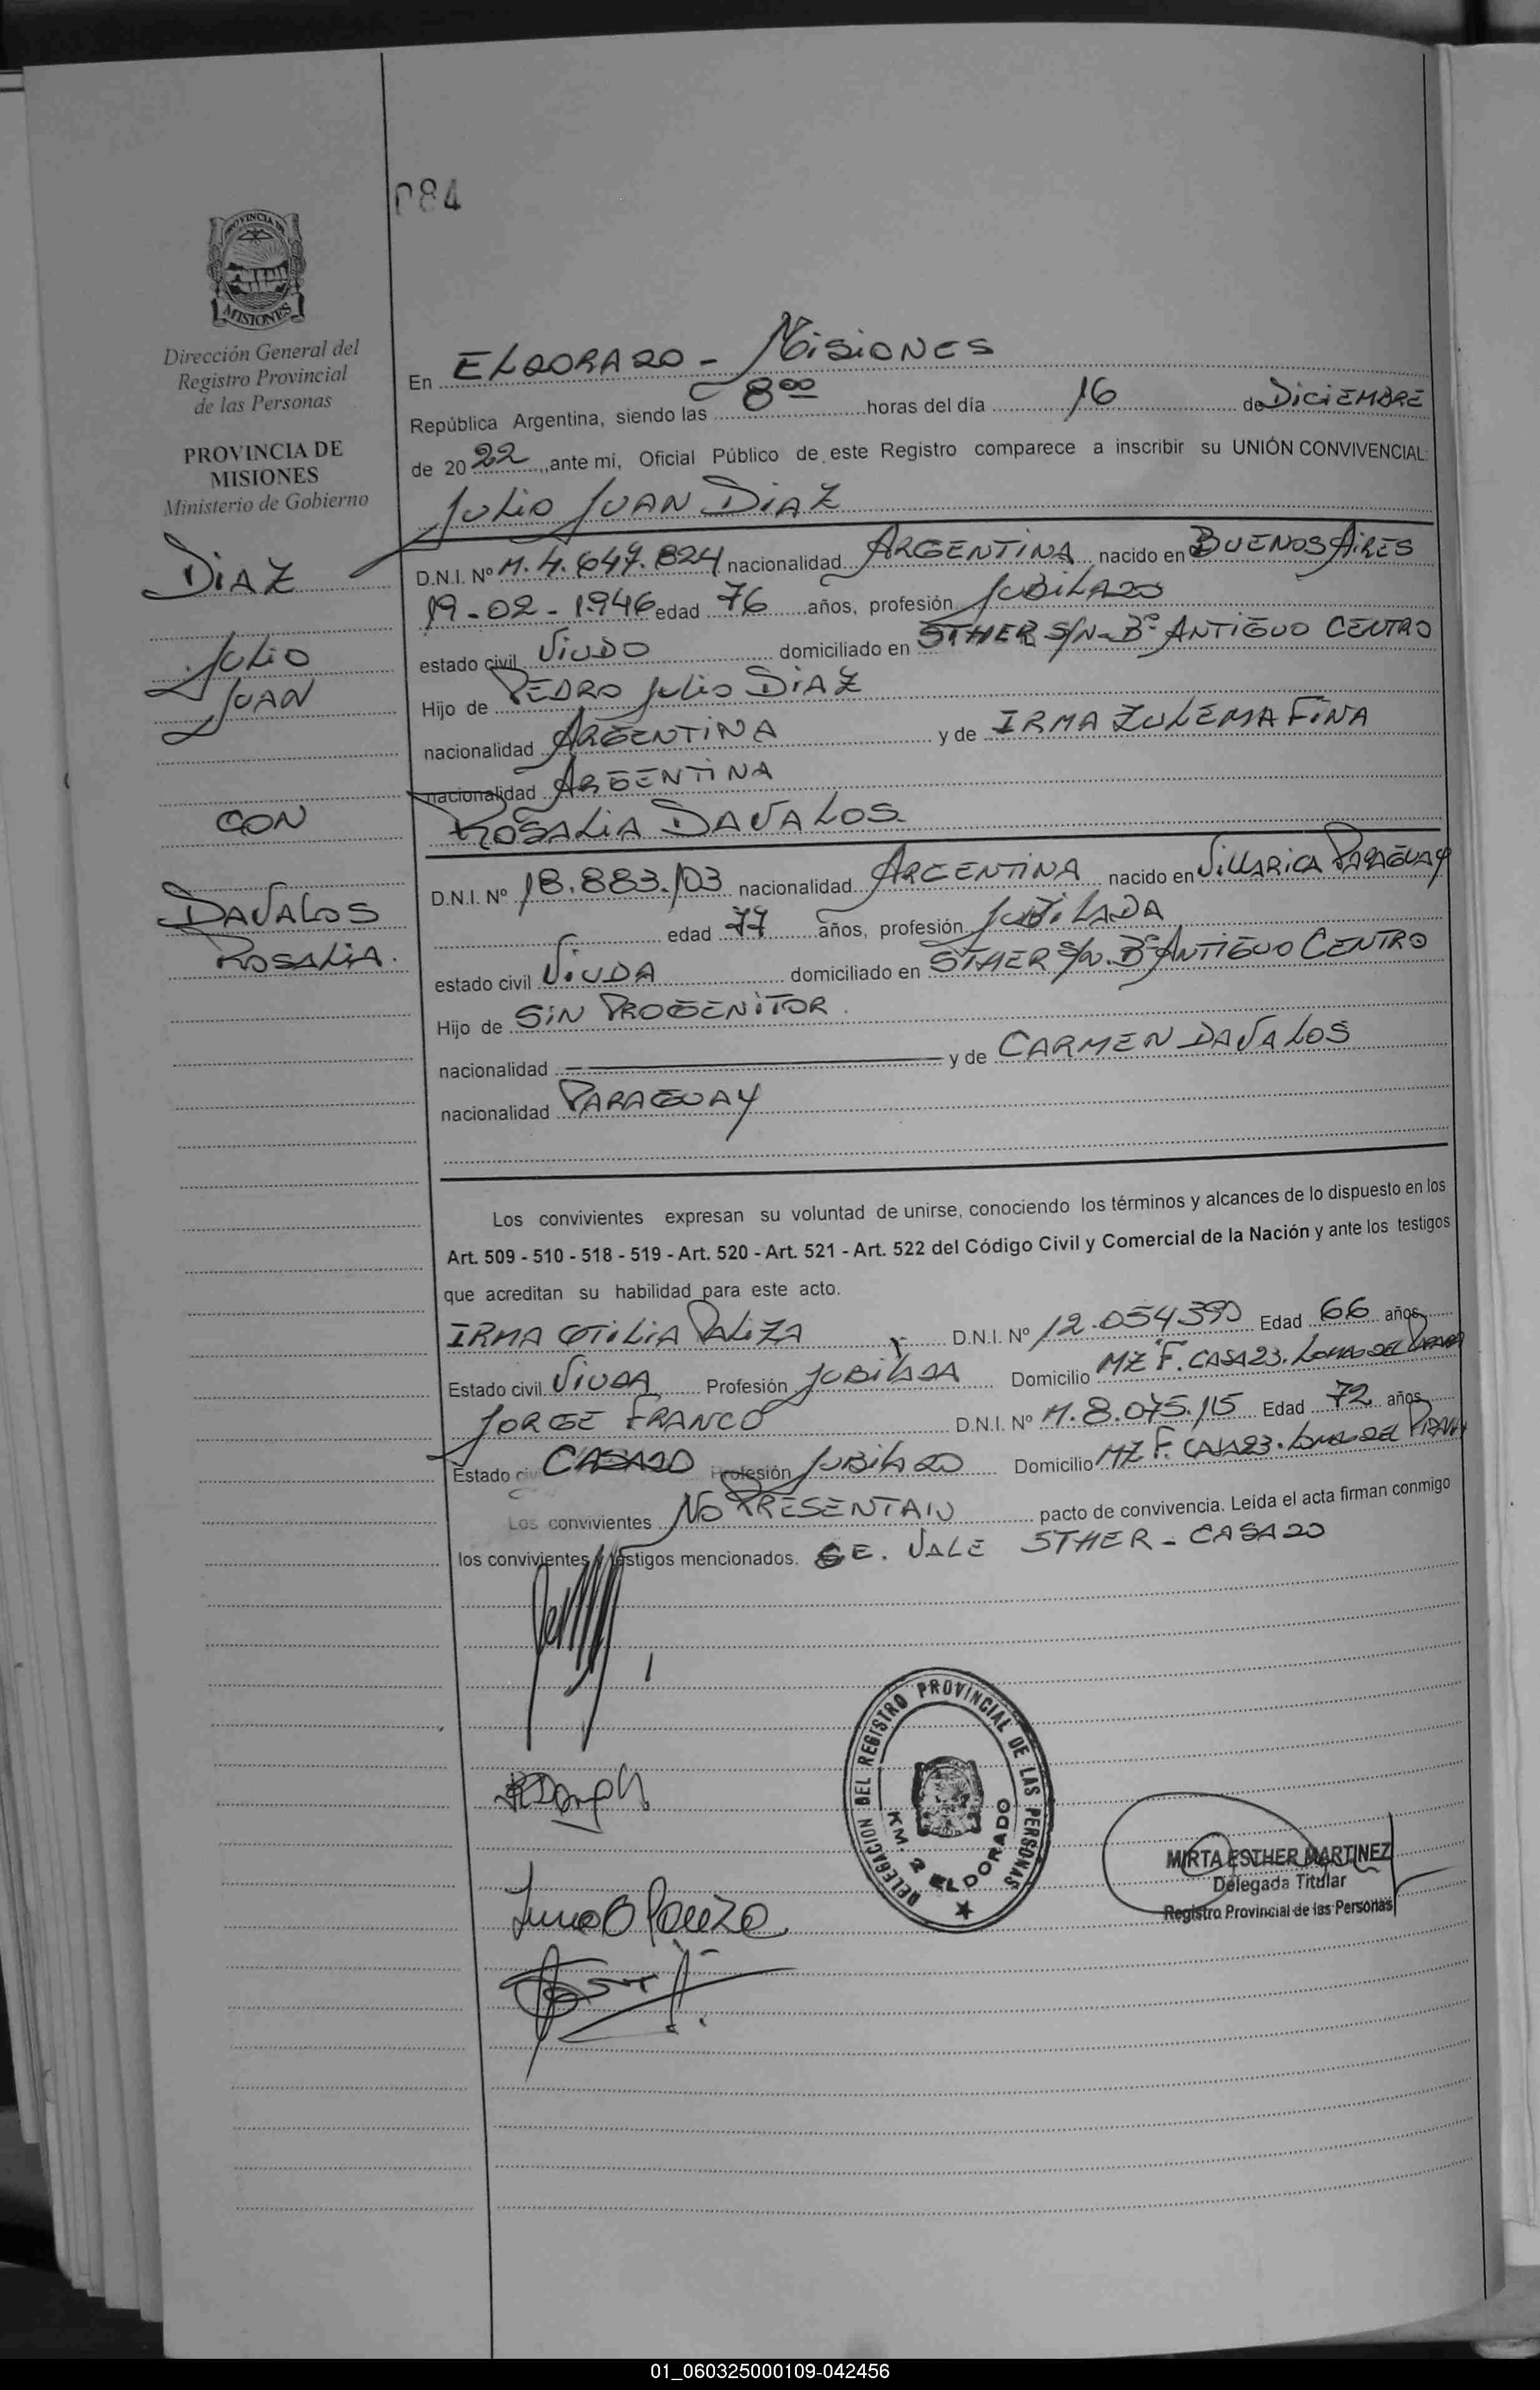 084
PROVINCIA DE
MISIONES
Dirección General del
Registro Provincial
de las Personas
PROVINCIA DE
MISIONES
Ministerio de Gobierno
DIAZ
JULIO
JUAN
CON
DAVALOS
ROSALIA.
En ELDORADO - MISIONES
República Argentina, siendo las 8 00 horas del día 16 de DICIEMBRE
de 2022, ante mi, Oficial Público de este Registro comparece a inscribir su UNIÓN CONVIVENCIAL:
JULIO JUAN DIAZ
D.N.I. Nº M. 4.649.824 nacionalidad ARGENTINA nacido en BUENOS AIRES
19-02-1946 edad 76 años, profesión JUBILADO
estado civil VIUDO domiciliado en STHER S/N - Bº ANTIGUO CENTRO
Hijo de PEDRO JULIO DIAZ
nacionalidad ARGENTINA y de IRMA ZULEMA FINA
nacionalidad ARGENTINA
ROSALIA DAVALOS
D.N.I. Nº 18.883.103 nacionalidad ARGENTINA nacido en VILLARICA PARAGUAY
edad 77 años, profesión JUBILADA
estado civil VIUDA domiciliado en STHER S/N. Bº ANTIGUO CENTRO
Hijo de SIN PROGENITOR.
nacionalidad — y de CARMEN DAVALOS
nacionalidad PARAGUAY
Los convivientes expresan su voluntad de unirse, conociendo los términos y alcances de lo dispuesto en los
Art. 509 - 510 - 518 - 519 - Art. 520 - Art. 521 - Art. 522 del Código Civil y Comercial de la Nación y ante los testigos
que acreditan su habilidad para este acto.
IRMA OTILIA PALIZA D.N.I. Nº 12.054390 Edad 66 años
Estado civil VIUDA Profesión JUBILADA Domicilio MZ F. CASA 23. LOMAS DEL PARANA
JORGE FRANCO D.N.I. Nº M. 8.075.115 Edad 72 años
Estado civil CASADO Profesión JUBILADO Domicilio MZ F. CASA 23. LOMAS DEL PARANA
Los convivientes NO PRESENTAN pacto de convivencia. Leída el acta firman conmigo
los convivientes y testigos mencionados. SE. VALE STHER - CASADO
DELEGACION DEL REGISTRO PROVINCIAL DE LAS PERSONAS
KM. 2 ELDORADO
MIRTA ESTHER MARTINEZ
Delegada Titular
Registro Provincial de las Personas
01_060325000109-042456